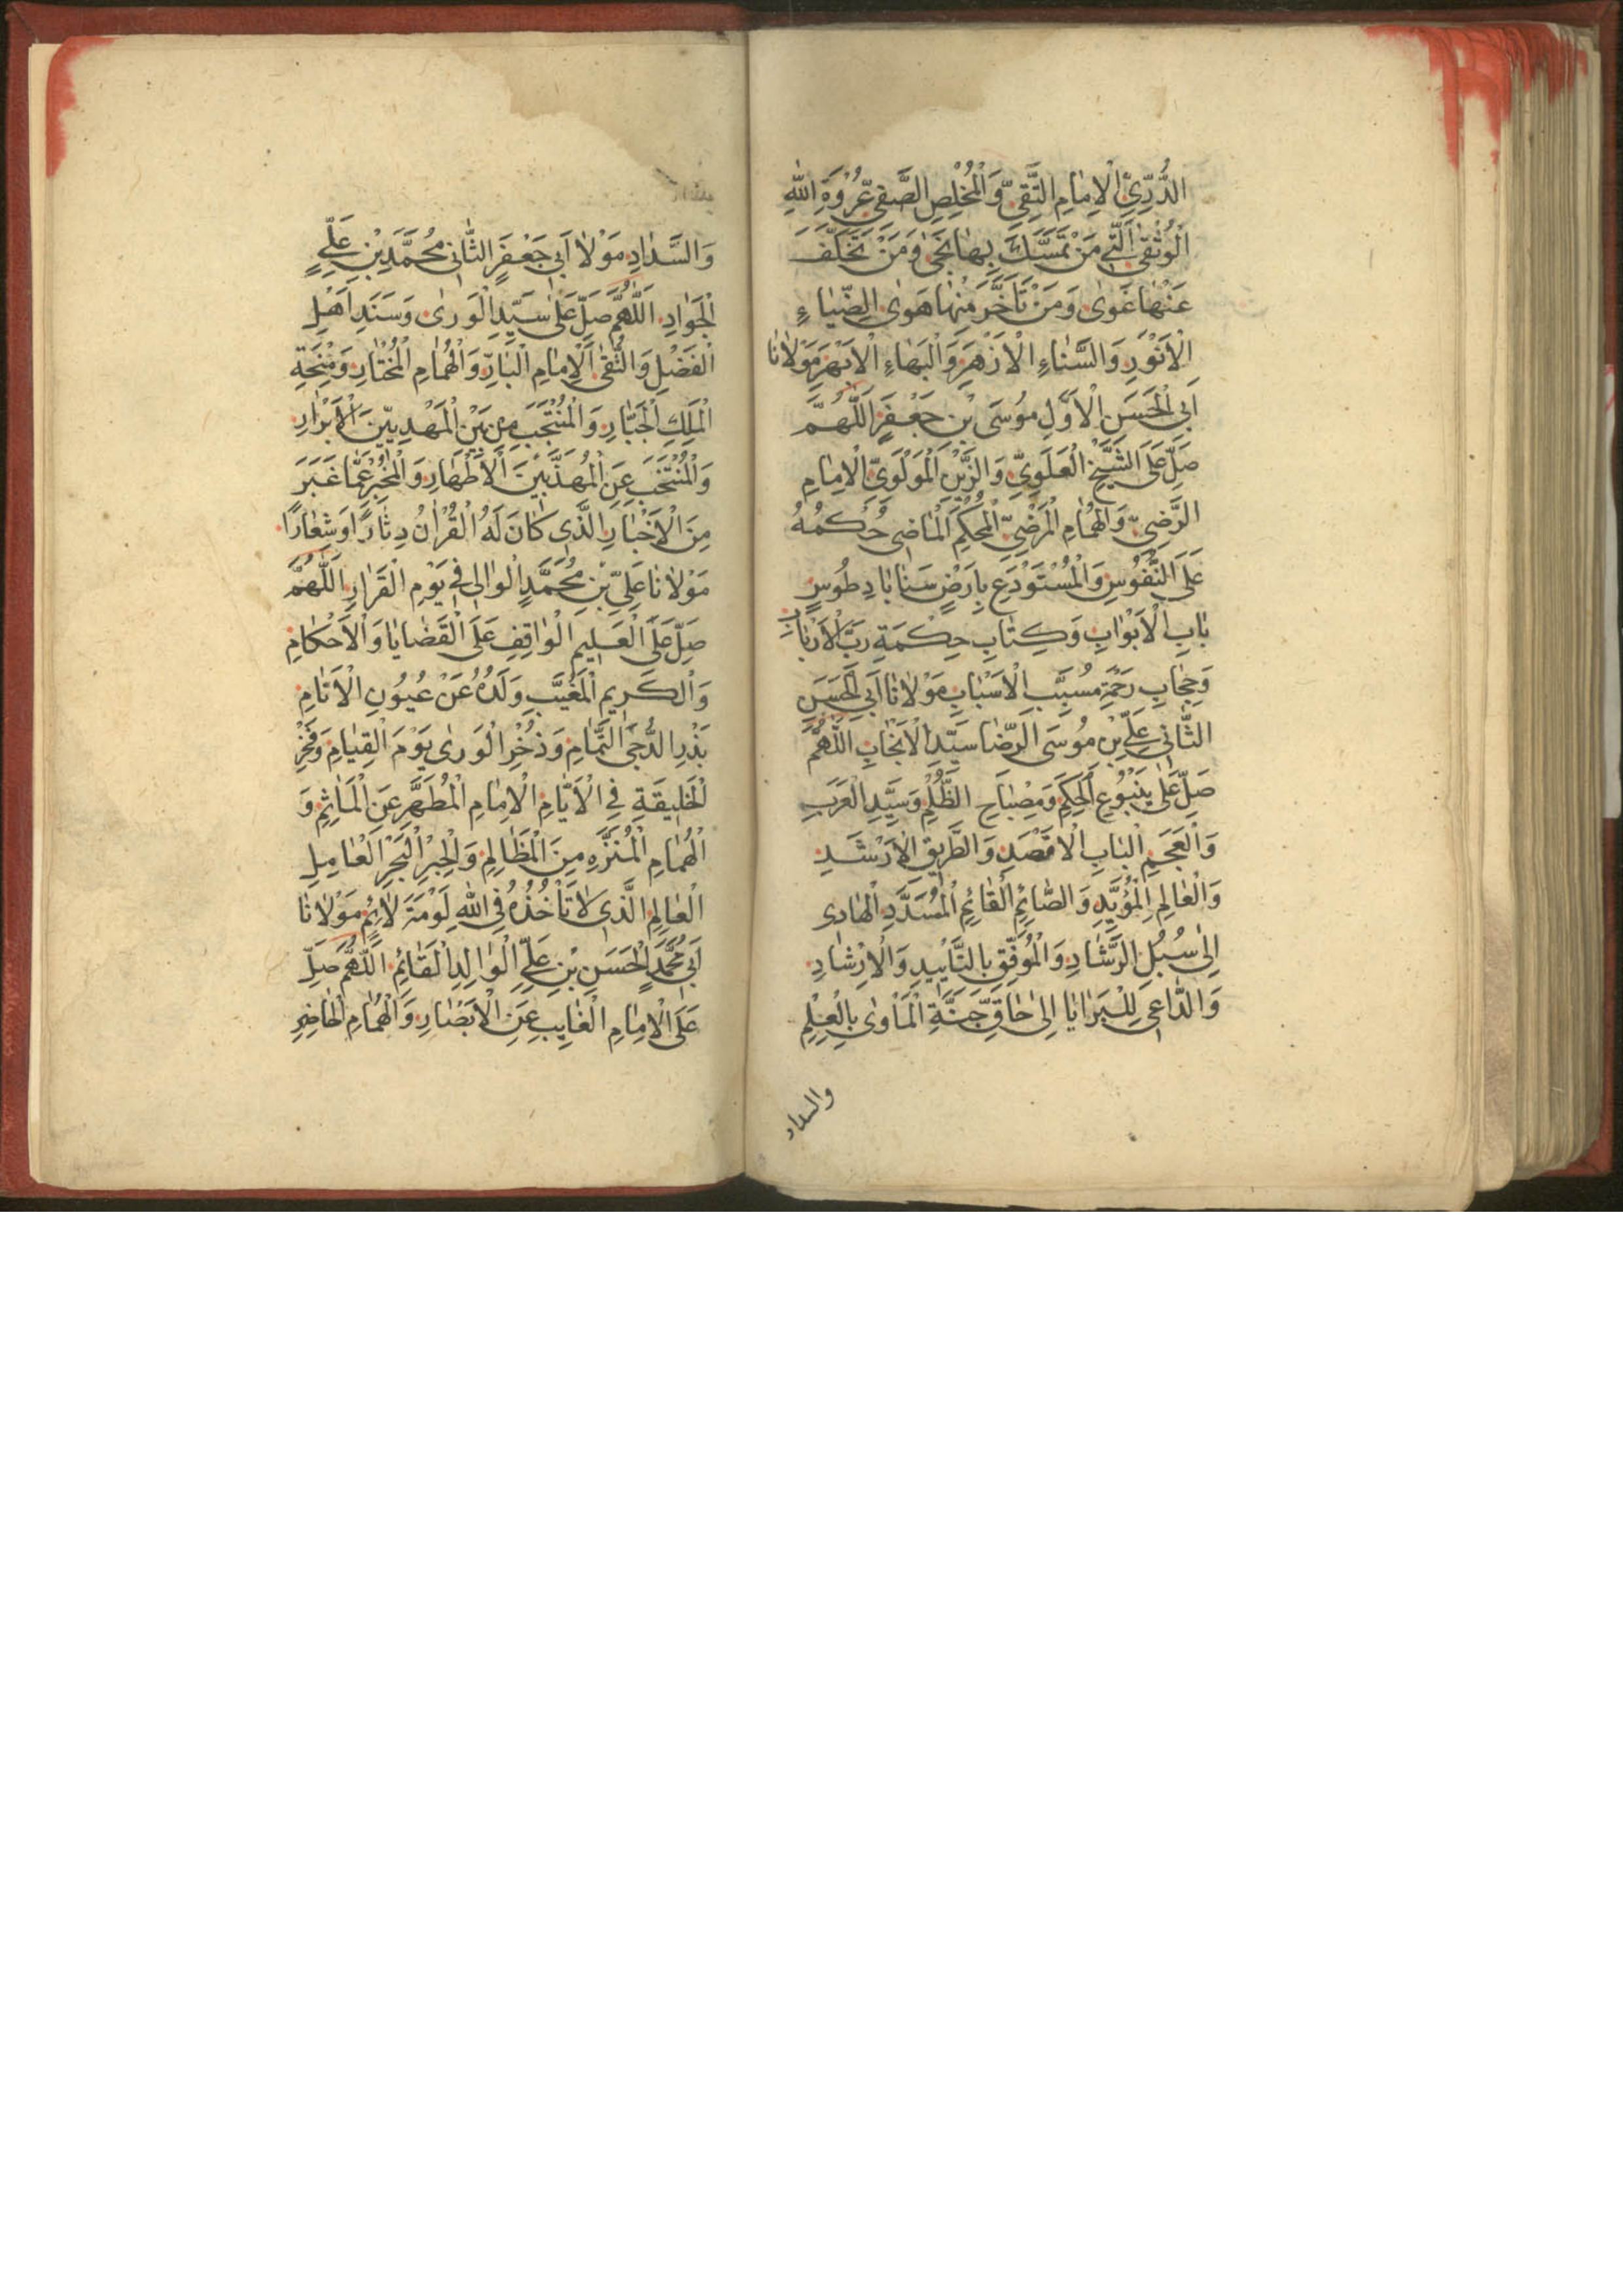 الدُّرِّيِّ الْاِمَامِ التَّقِيِّ وَالْمُخْلِصِ الصَّفِيِّ عُرْوَةِ اللهِ
الْوُثْقَى الَّتِي مَنْ تَمَسَّكَ بِهَا نَجَى وَمَنْ تَخَلَّفَ
عَنْهَا غَوٰى وَمَنْ تَاَخَّرَ مِنْهَا هَوٰى الضِّيَاءِ
الْاَنْوَرِ وَالسَّنَاءِ الْاَزْهَرِ وَالْبَهَاءِ الْاَبْهَرِ مَوْلَانَا
اَبِي الْحَسَنِ الْاَوَّلِ مُوسَى بْنِ جَعْفَرٍ اَللّٰهُمَّ
صَلِّ عَلَى الشَّيْخِ الْعَلَوِيِّ وَالزَّيْنِ الْمَوْلَوِيِّ الْاِمَامِ
الرَّضِيِّ وَالْهُمَامِ الْمَرْضِيِّ الْمُحْكَمِ الْمَاضِي حُكْمُهُ
عَلَى النُّفُوسِ وَالْمُسْتَوْدَعِ بِاَرْضِ سَنَابَادِ طُوسٍ
بَابِ الْاَبْوَابِ وَكِتَابِ حِكْمَةِ رَبِّ الْاَرْبَابِ
وَحِجَابِ رَحْمَةِ مُسَبِّبِ الْاَسْبَابِ مَوْلَانَا اَبِي الْحَسَنِ
الثَّانِي عَلِيِّ بْنِ مُوسَى الرِّضَا سَيِّدِ الْاَنْجَابِ اَللّٰهُمَّ
صَلِّ عَلٰى يَنْبُوعِ الْحِكَمِ وَمِصْبَاحِ الظُّلَمِ وَسَيِّدِ الْعَرَبِ
وَالْعَجَمِ الْبَابِ الْاَقْصَدِ وَالطَّرِيقِ الْاَرْشَدِ
وَالْعَالِمِ الْمُؤَيَّدِ وَالصَّائِمِ الْقَائِمِ الْمُسَدَّدِ الْهَادِى
اِلٰى سُبُلِ الرَّشَادِ وَالْمُوَفَّقِ بِالتَّاْيِيدِ وَالْاِرْشَادِ
وَالدَّاعِى لِلْبَرَايَا اِلٰى حَاقِّ جَنَّةِ الْمَأْوٰى بِالْعِلْمِ
والسداد
وَالسَّدَادِ مَوْلَا اَبِي جَعْفَرٍ الثَّانِي مُحَمَّدِ بْنِ عَلِيٍّ
الْجَوَادِ اَللّٰهُمَّ صَلِّ عَلٰى سَيِّدِ الْوَرٰى وَسَنَدِ اَهْلِ
الْفَضْلِ وَالتُّقٰى الْاِمَامِ الْبَارِّ وَالْهُمَامِ الْمُخْتَارِ وَمِنْحَةِ
الْمَلِكِ الْجَبَّارِ وَالْمُنْتَجَبِ مِنْ بَيْنِ الْمَهْدِيِّينَ الْاَبْرَارِ
وَالْمُنْتَخَبِ عَنِ الْمُهَذَّبِينَ الْاَطْهَارِ وَالْمُخْبِرِ عَمَّا غَبَرَ
مِنَ الْاَخْبَارِ الَّذِى كَانَ لَهُ الْقُرْاٰنُ دِثَارًا وَشِعَارًا
مَوْلَانَا عَلِيِّ بْنِ مُحَمَّدٍ الْوَالِى فِي يَوْمِ الْقَرَارِ اَللّٰهُمَّ
صَلِّ عَلَى الْعَلِيمِ الْوَاقِفِ عَلَى الْقَضَايَا وَالْاَحْكَامِ
وَالْكَرِيمِ الْمُغَيَّبِ وَلَدُهُ عَنْ عُيُونِ الْاَنَامِ
بَدْرِ الدُّجَى التَّمَامِ وَذُخْرِ الْوَرٰى يَوْمَ الْقِيَامِ وَفَخْرِ
الْخَلِيقَةِ فِي الْاَيَّامِ الْاِمَامِ الْمُطَهَّرِ عَنِ الْمَاٰثِمِ وَ
الْهُمَامِ الْمُنَزَّهِ مِنَ الْمَظَالِمِ وَالْحِبْرِ الْبَحْرِ الْعَامِلِ
الْعَالِمِ الَّذِى لَا تَأْخُذُهُ فِي اللهِ لَوْمَةُ لَائِمٍ مَوْلَانَا
اَبِي مُحَمَّدٍ الْحَسَنِ بْنِ عَلِيٍّ الْوَالِدِ الْقَائِمِ اَللّٰهُمَّ صَلِّ
عَلَى الْاِمَامِ الْغَايِبِ عَنِ الْاَبْصَارِ وَالْهُمَامِ الْحَاضِرِ